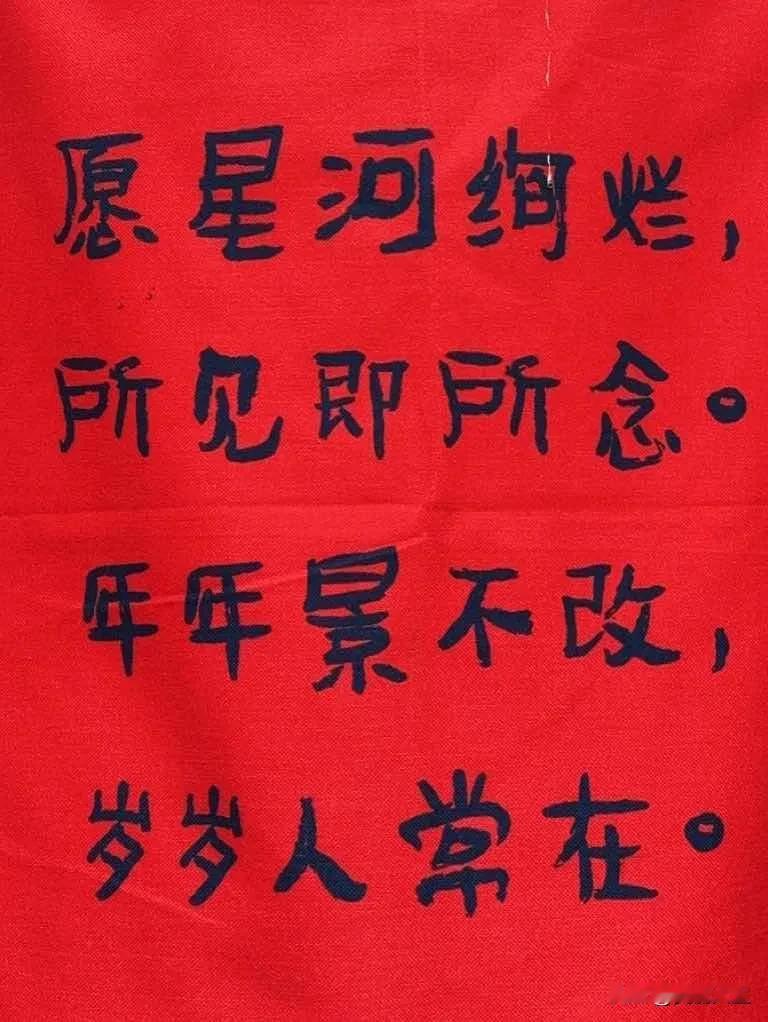 愿星河绚烂,
所见即所念。
年年景不改,
岁岁人常在。